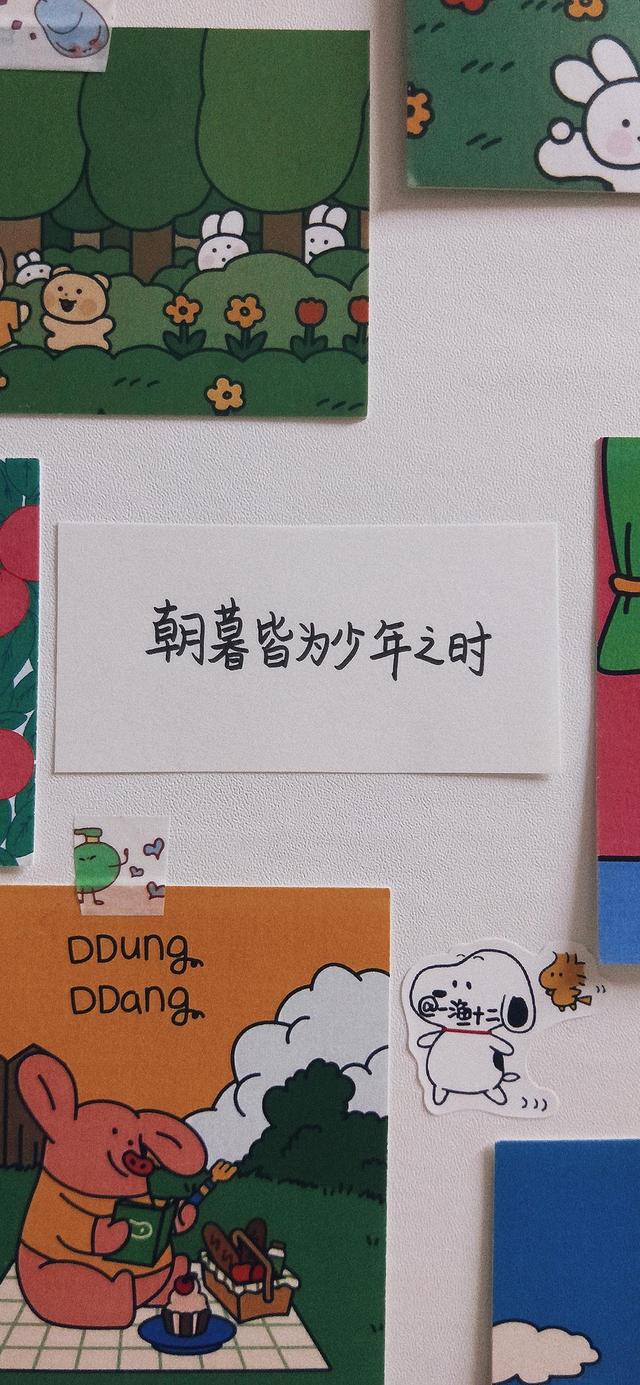 朝暮皆为少年之时
DDung
DDang
@一渔十二